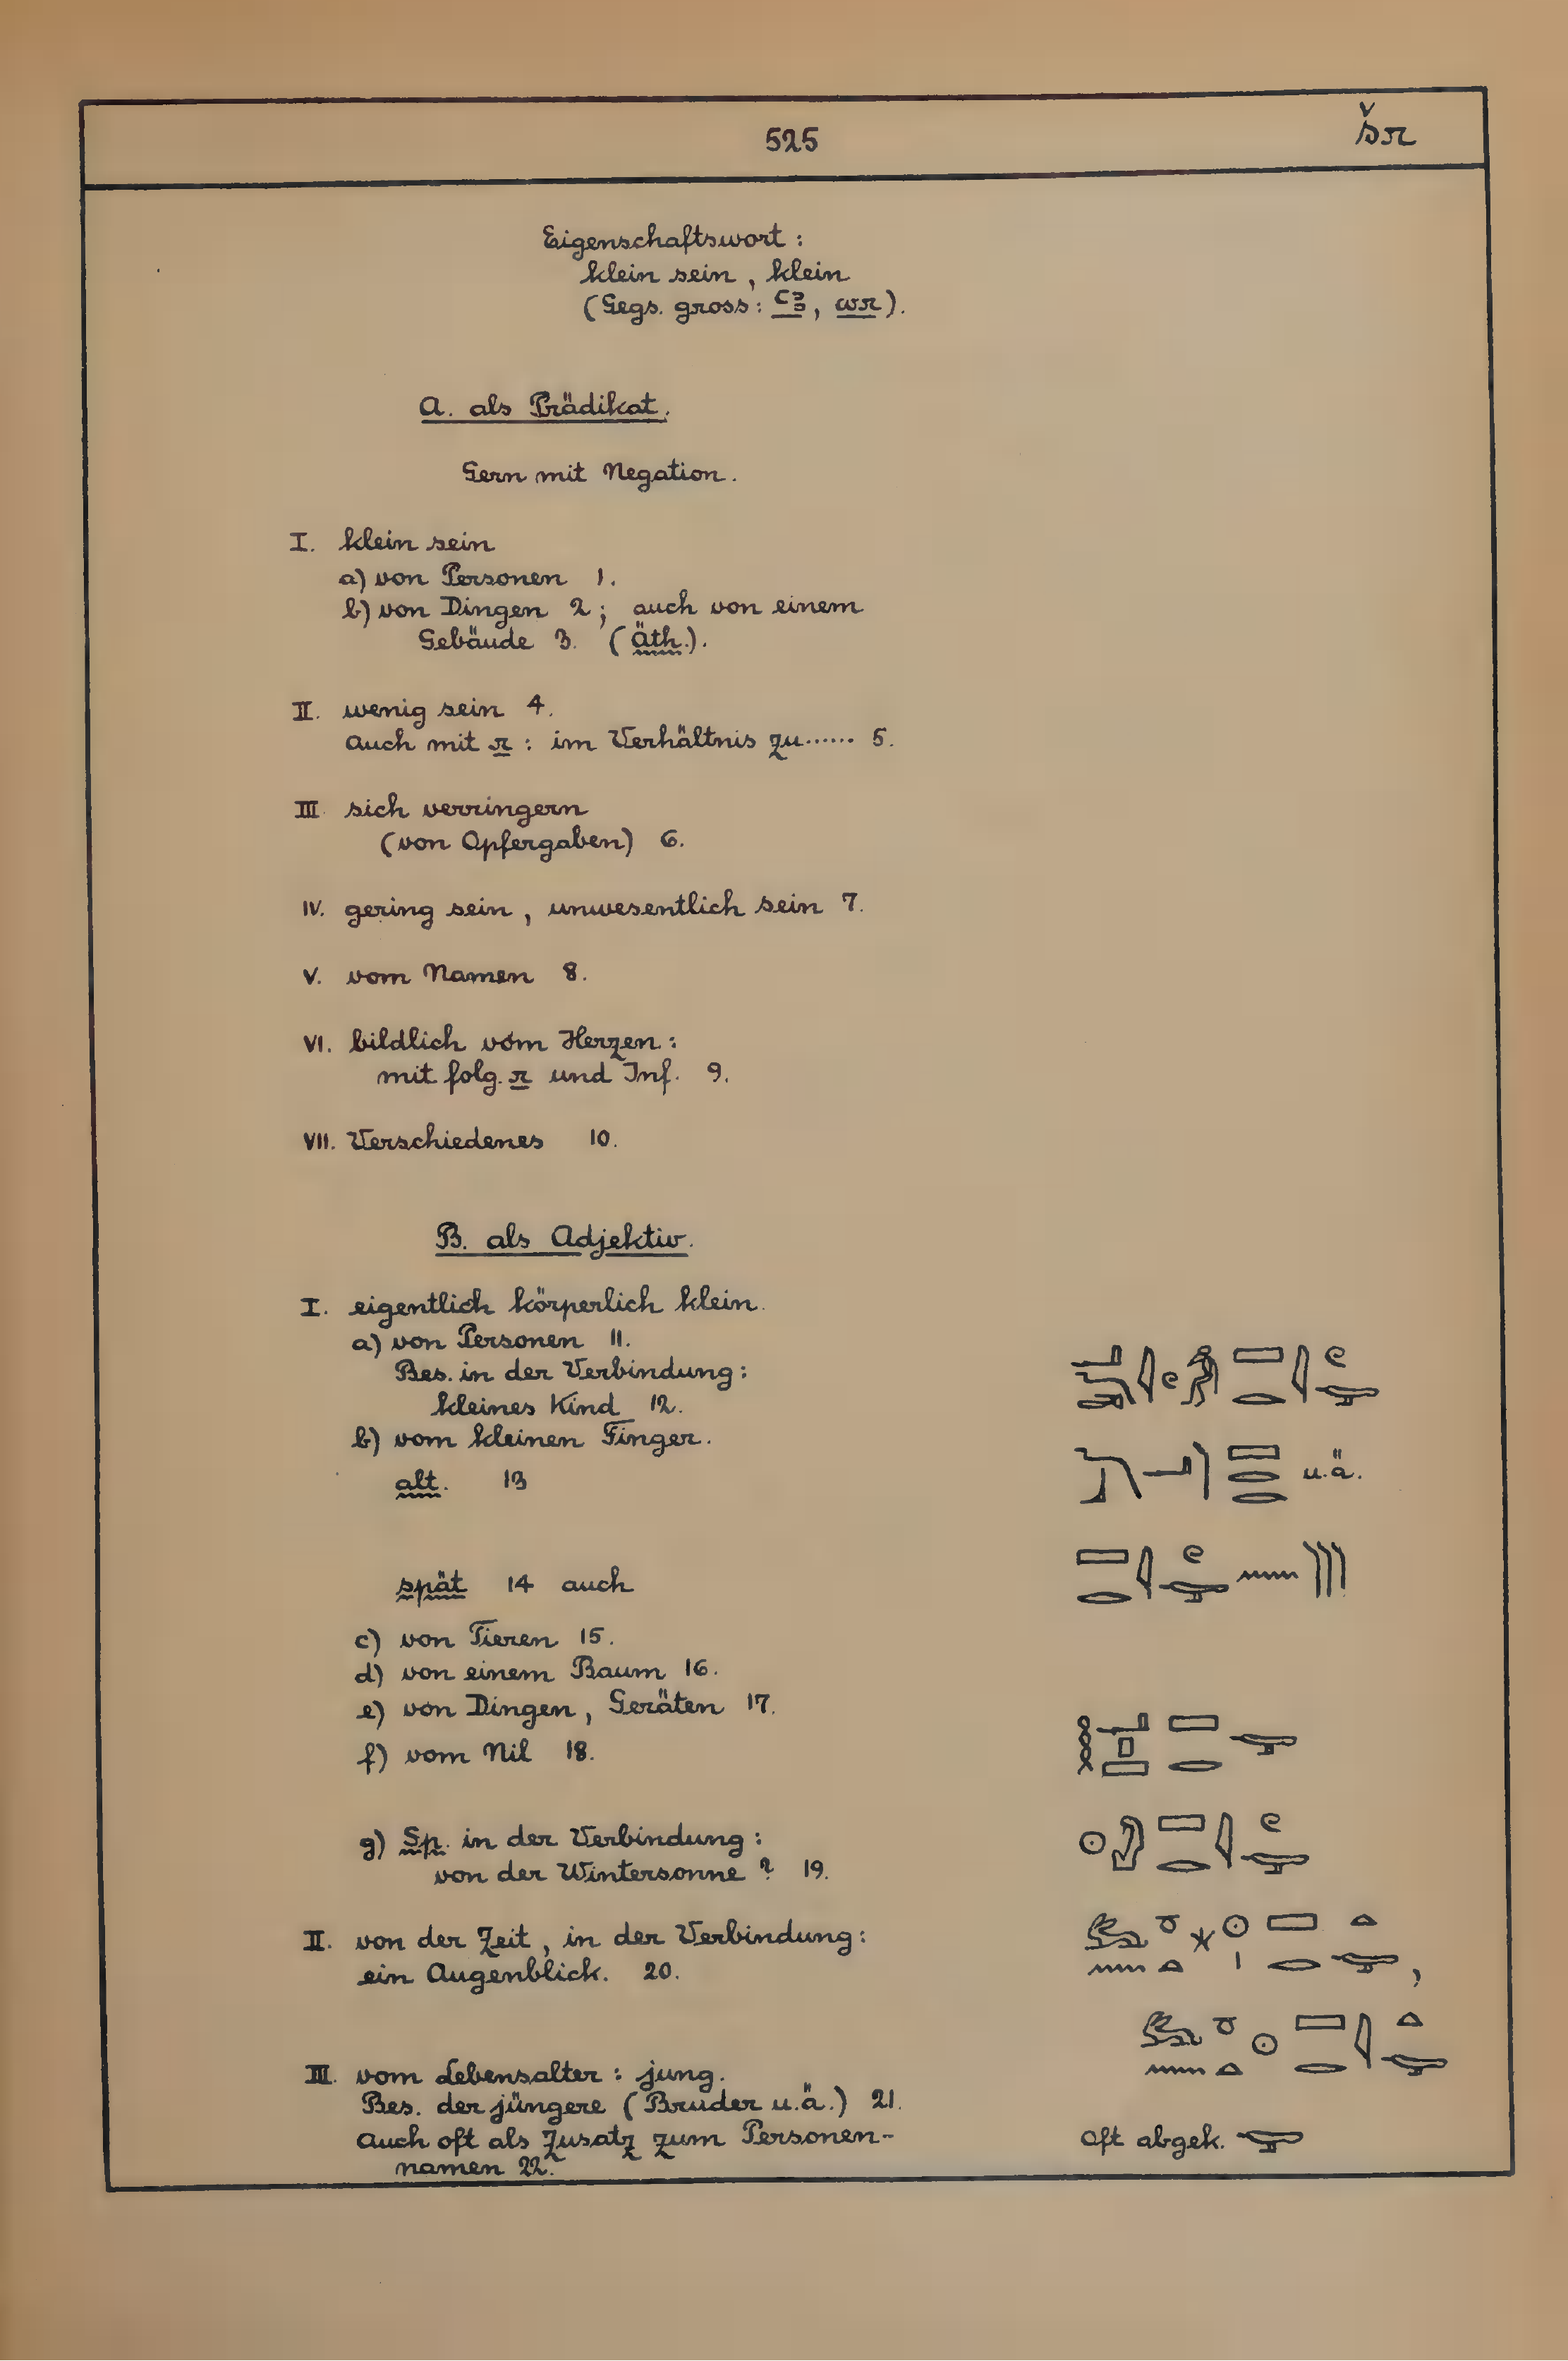 525 šr
Eigenschaftswort:
klein sein, klein
(Gegs. gross: ꜥꜣ, wr).
A. als Prädikat.
Gern mit Negation.
I. klein sein
a) von Personen 1.
b) von Dingen 2; auch von einem
Gebäude 3. (Äth.).
II. wenig sein 4.
Auch mit r: im Verhältnis zu...... 5.
III. sich verringern
(von Opfergaben) 6.
IV. gering sein, unwesentlich sein 7.
V. vom Namen 8.
VI. bildlich vom Herzen:
mit folg. r und Inf. 9.
VII. Verschiedenes 10.
B. als Adjektiv.
I. eigentlich körperlich klein.
a) von Personen 11.
Bes. in der Verbindung:
kleines Kind 12.
b) vom kleinen Finger.
alt. 13 u.ä.
spät 14 auch
c) von Tieren 15.
d) von einem Baum 16.
e) von Dingen, Geräten 17.
f) vom Nil 18.
g) Sp. in der Verbindung:
von der Wintersonne? 19.
II. von der Zeit, in der Verbindung:
ein Augenblick. 20.
III. vom Lebensalter: jung.
Bes. der jüngere (Bruder u.ä.) 21.
Auch oft als Zusatz zum Personen-
namen 22. oft abgek.